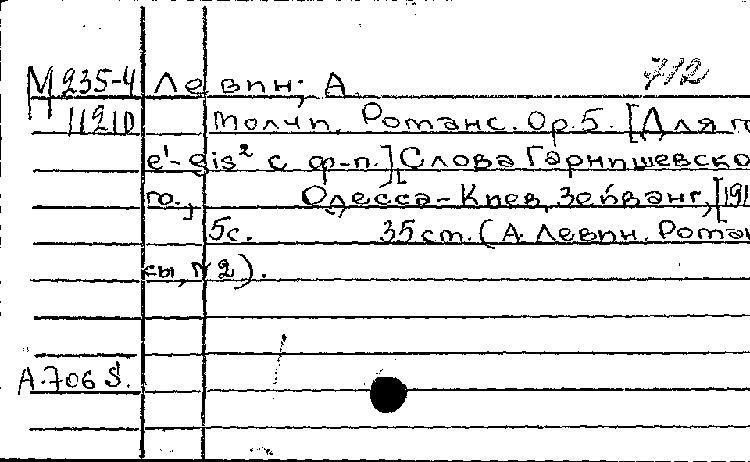 М 235-4 Левин, А. 712
11210 Молчи. Романс. Ор. 5. [Для г
e¹-gis² с ф-п.] [Слова Гарнишевско
го.] Одесса-Киев, Зейванг, [191
5с. 35 см. (А. Левин. Роман
сы, №2).
А.706 S.